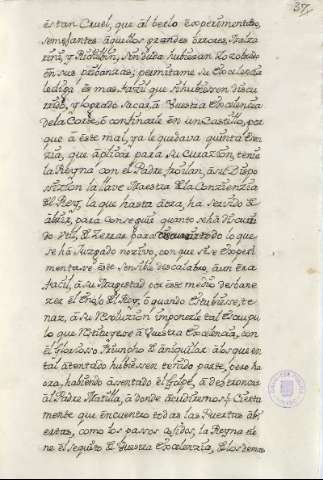 37
es tan Cruel, que al berlo experimentar,
semejantes aquellos grandes errores, Mazarini,
y Richilieu, sin duda hubieran
en sus privanzas; permitame su Excelencia
le diga, es mas facil que si hubiesen discurrido,
y logrado sacar, a Vuestra Excelencia
de la Corte, o confinarle en un Castillo, por
que a este mal, ya le quedava quinta Esencia,
que aplicar para su curazion, tenia
la Reyna con el Padre, a su Disposizion
la llave Maestra de la Conzienzia
del Rey, la que hasta aora, ha servido de
abrir, para conseguir quanto se ha
de Util, y zerrar para todo lo que
se ha Juzgado nozivo, con que si se experimentase
este sensible descalabro, aun era
facil, a su Magestad por este medio
el Enojo del Rey, o quando estubiese
a su Resoluzion imponerle tal Escrupulo
que restituyese a Vuestra Excelencia, con
el Glorioso triumpho de aniquilar a los que en
tal atentado hubiesen tenido parte, pero
aora, habiendo asentado el Golpe, a destronar
al Padre Matilla, a donde acudiremos? Ciertamente
que encuentro todas las Puertas abiertas,
como los pasos asidos, la Reyna tiene
el sequito de Vuestra Excelenzia, de los demas